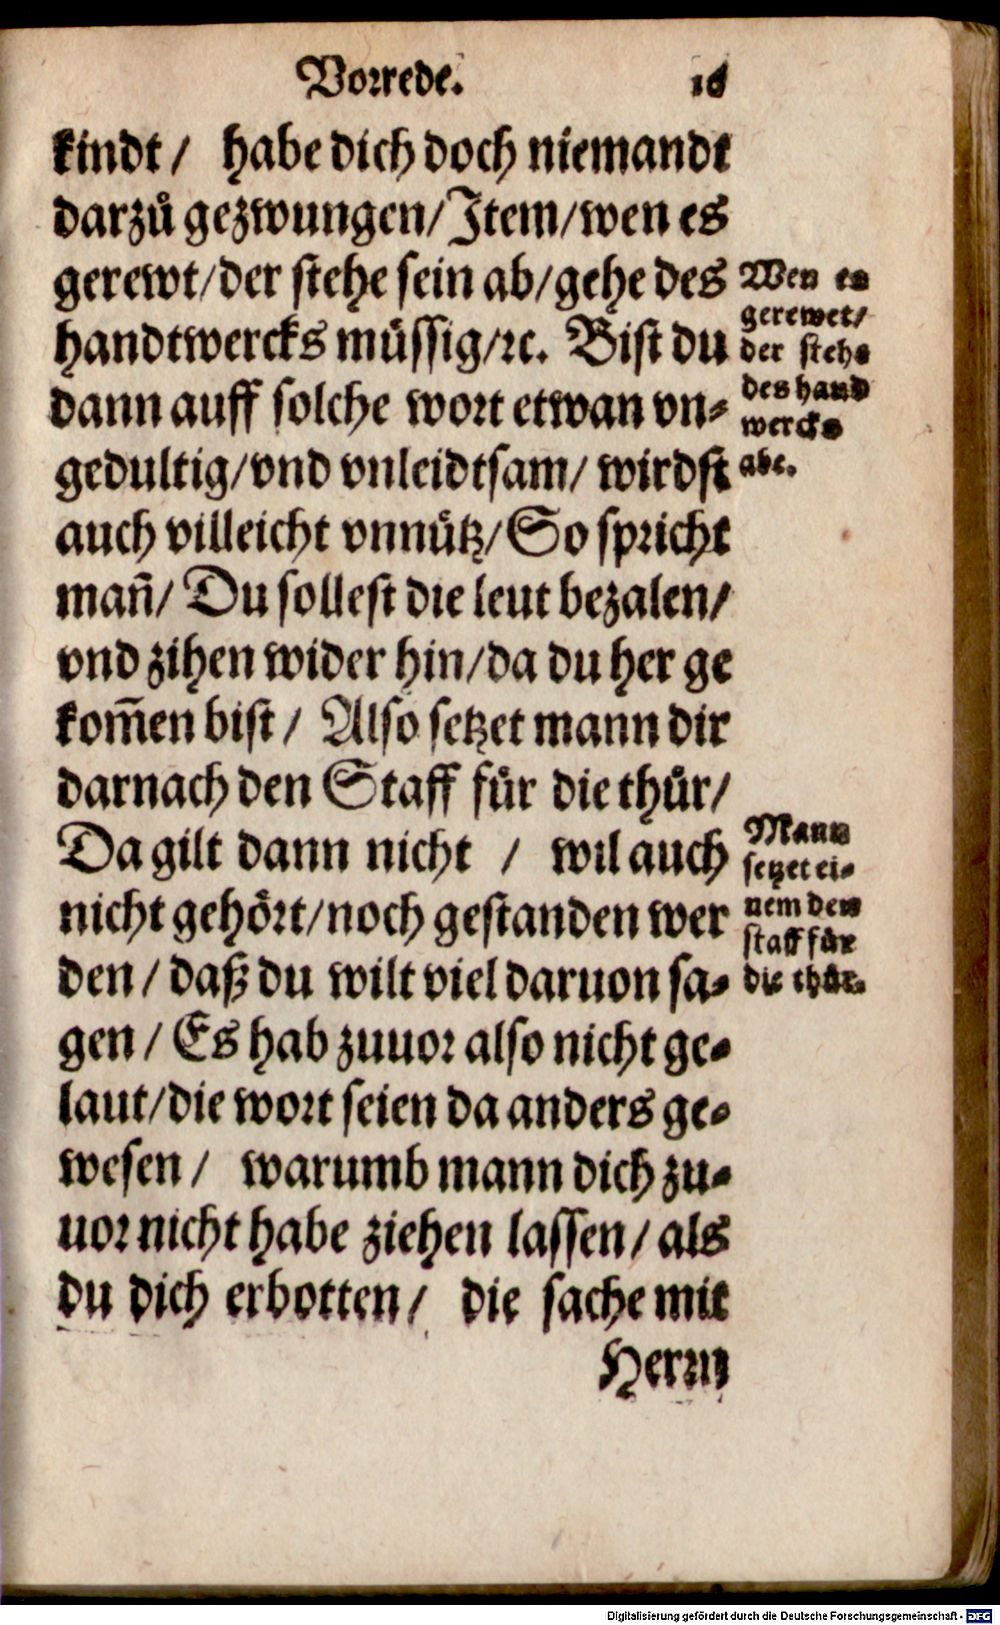 Vorrede. 16
kindt / habe dich doch niemandt
darzů gezwungen/Item/wen es
gerewt/der stehe sein ab/gehe des
handtwercks müssig/ꝛc. Bist du
dann auff solche wort etwan vn⸗
gedultig/vnd vnleidtsam/ wirdst
auch villeicht vnnütz/So spricht
man̄/ Du sollest die leut bezalen/
vnd zihen wider hin/da du her ge
kom̄en bist / Also setzet mann dir
darnach den Staff für die thür/
Da gilt dann nicht / wil auch
nicht gehört/noch gestanden wer
den / daß du wilt viel daruon sa⸗
gen / Es hab zuuor also nicht ge⸗
laut/die wort seien da anders ge⸗
wesen / warumb mann dich zu⸗
uor nicht habe ziehen lassen / als
du dich erbotten / die sache mit
Herrn
Wen es
gerewet/
der stehe
des hand
wercks
abe.
Mann
setzet ei⸗
nem den
staff für
die thür.
Digitalisierung gefördert durch die Deutsche Forschungsgemeinschaft - DFG